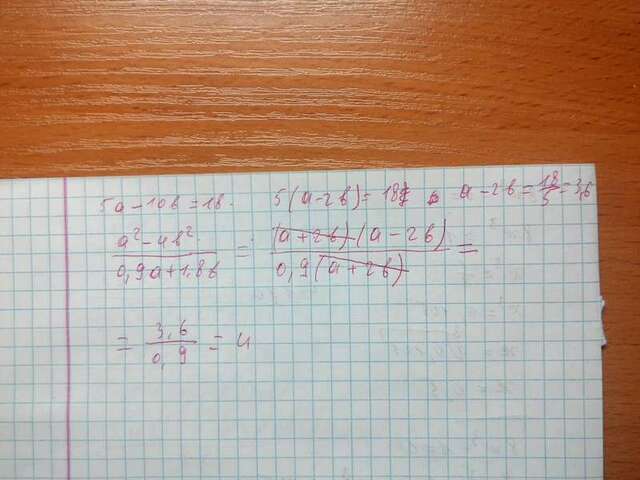 5a - 10b = 18. 5(a - 2b) = 18 a - 2b = 18/5 = 3,6
(a² - 4b²)/(0,9a + 1,8b) = ((a + 2b)(a - 2b))/(0,9(a + 2b)) =
= 3,6/0,9 = 4